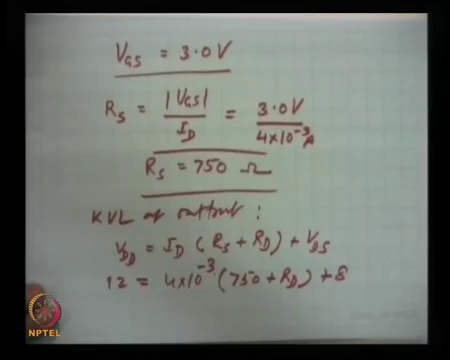 V_GS = 3.0V
R_S = |V_GS| / I_D = 3.0V / 4×10⁻³A
R_S = 750 Ω
KVL at output :
V_DD = I_D ( R_S + R_D ) + V_DS
12 = 4×10⁻³ ( 750 + R_D ) + 8
NPTEL